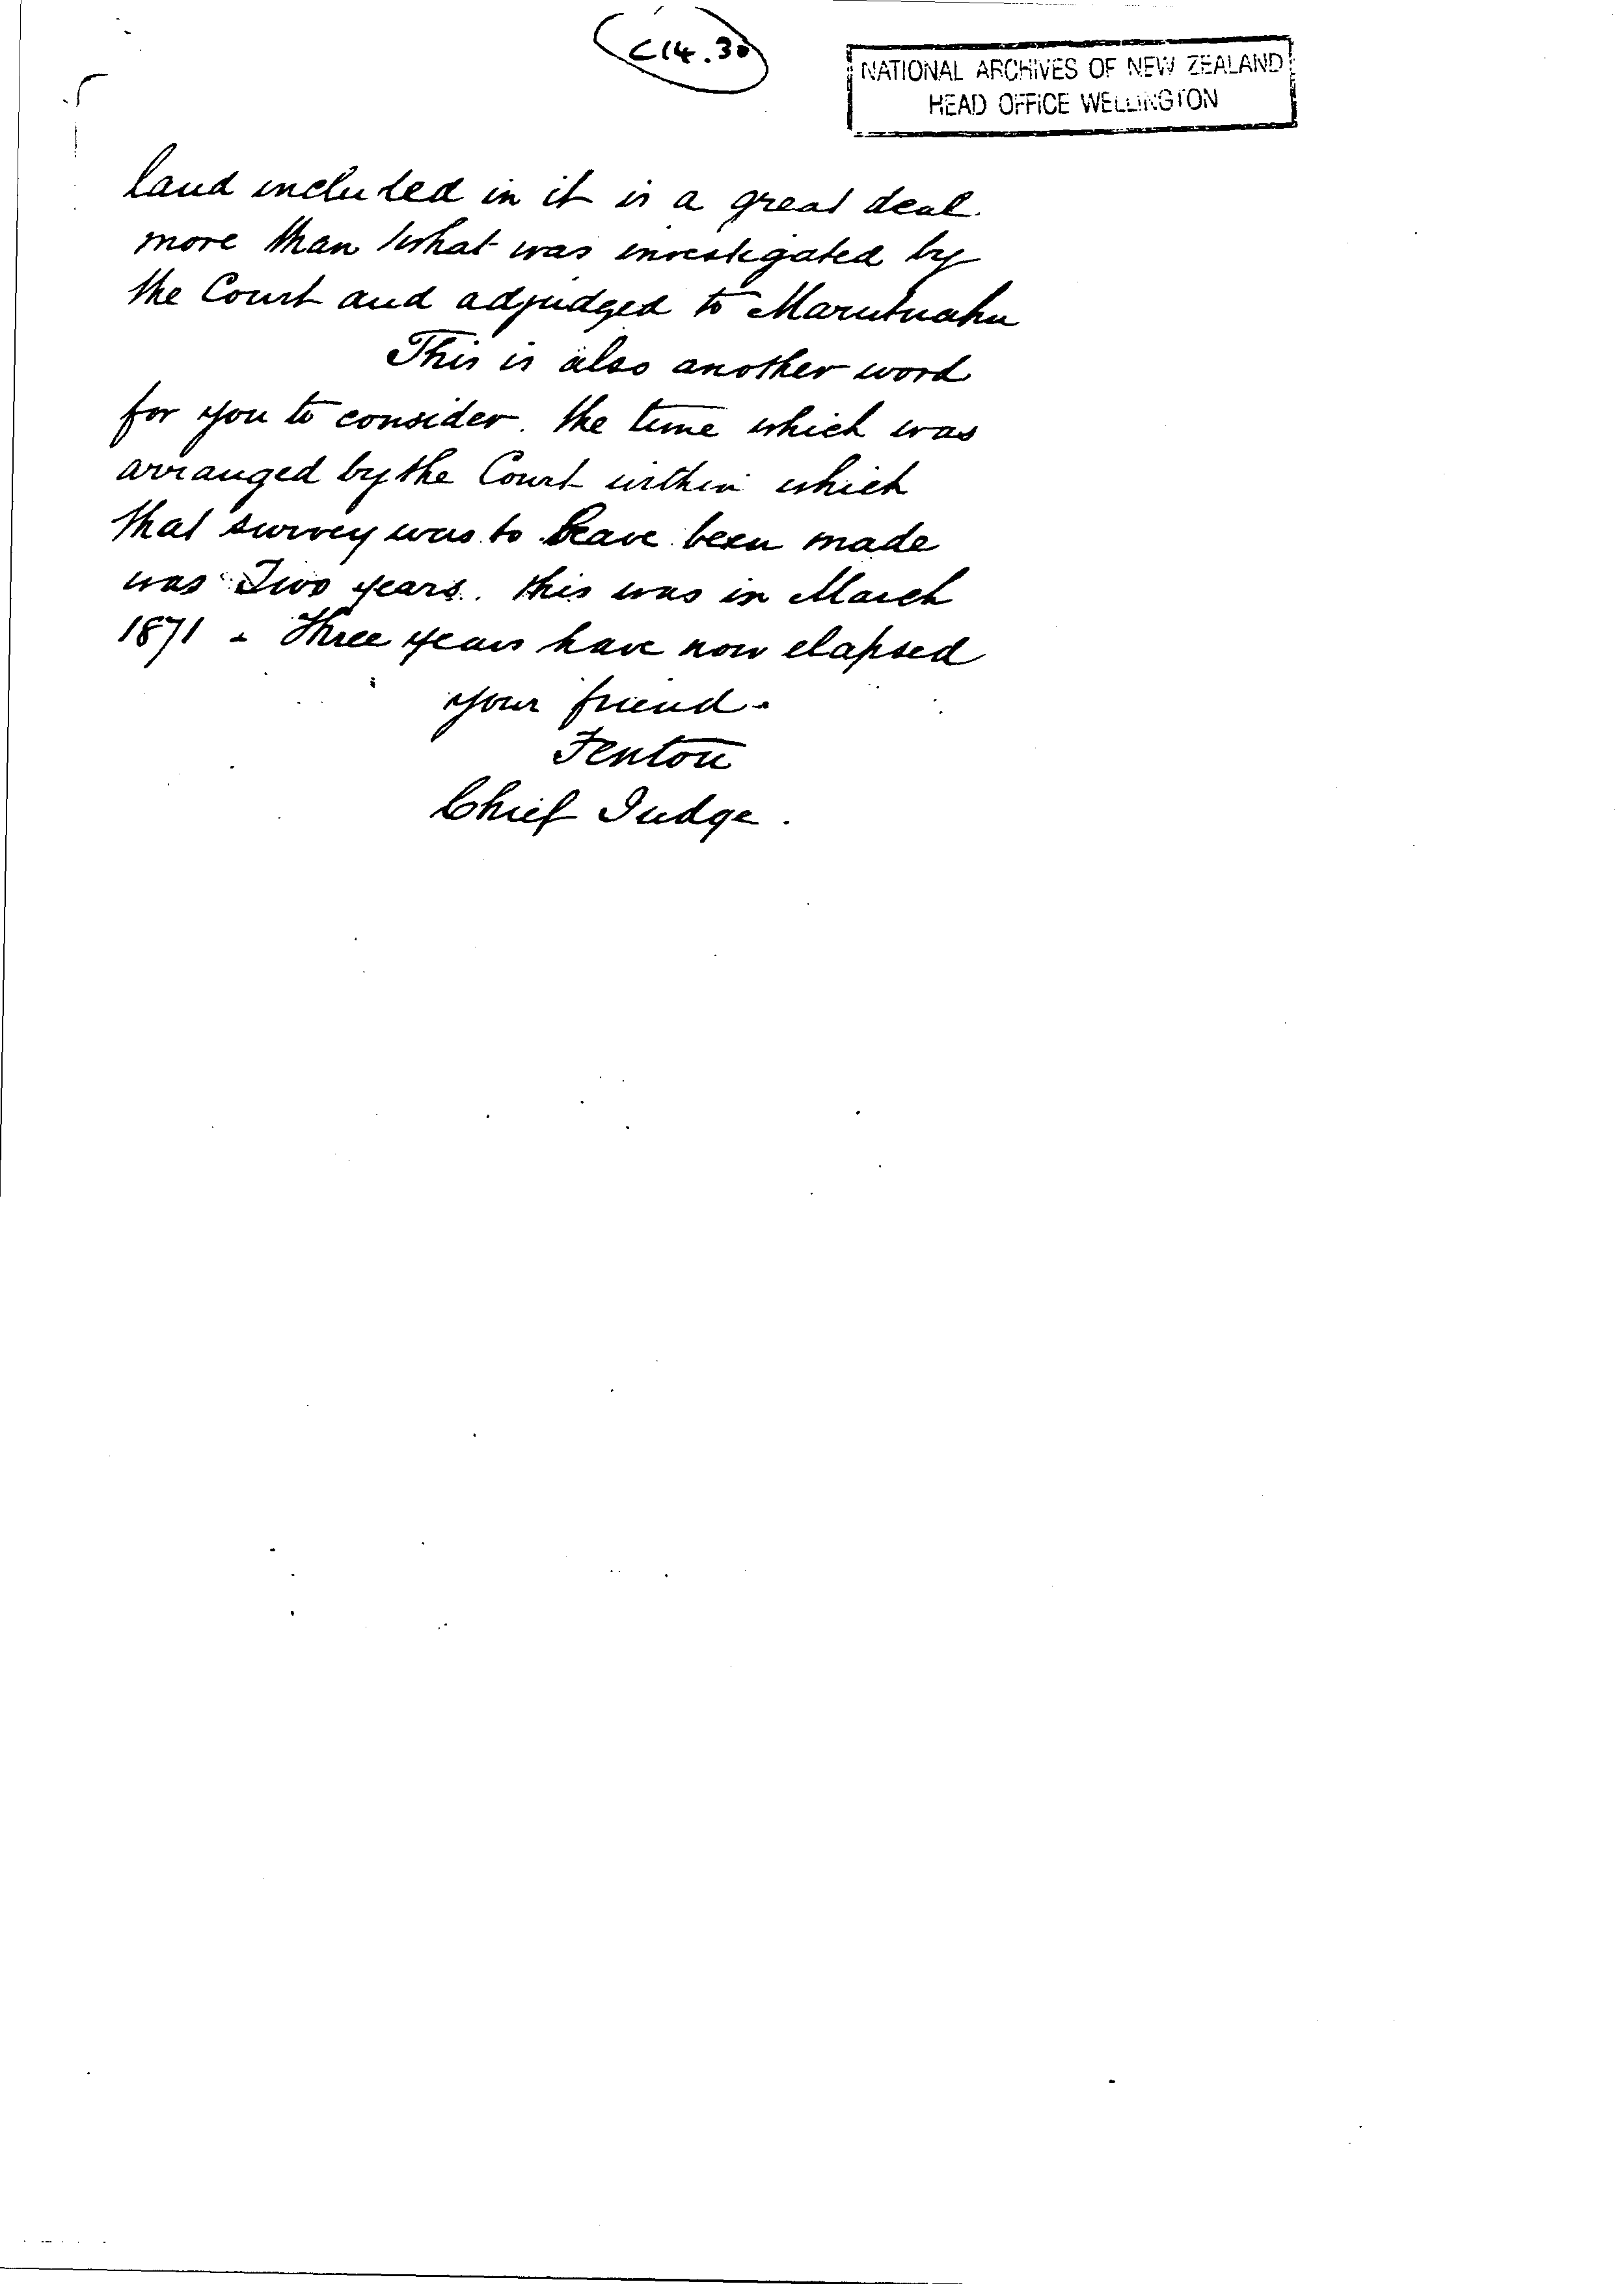 C14.30
NATIONAL ARCHIVES OF NEW ZEALAND
HEAD OFFICE WELLINGTON
land included in it is a great deal
more than what was investigated by
the Court and adjudged to Marutuahu
This is also another word
for you to consider. the time which was
arranged by the Court within which
that survey was to have been made
was Two years. this was in March
1871 - Three years have now elapsed
your friend.
Fenton
Chief Judge.